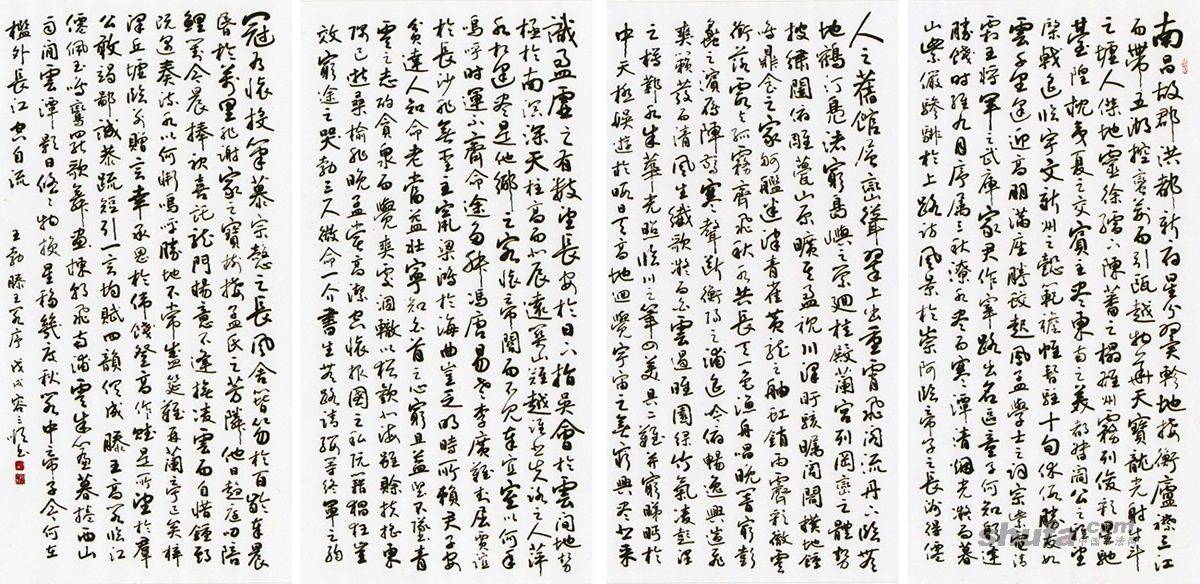 南昌故郡洪都新府星分翼軫地接衡廬襟三江
而帶五湖控蠻荊而引甌越物華天寶龍光射牛斗
之墟人傑地靈徐孺下陳蕃之榻雄州霧列俊彩星馳
臺隍枕夷夏之交賓主盡東南之美都督閻公之雅望
棨戟遙臨宇文新州之懿範襜帷暫駐十旬休假勝友如
雲千里逢迎高朋滿座騰蛟起鳳孟學士之詞宗紫電清
霜王將軍之武庫家君作宰路出名區童子何知躬逢
勝餞時維九月序屬三秋潦水盡而寒潭清煙光凝而暮
山紫儼驂騑於上路訪風景於崇阿臨帝子之長洲得仙
人之舊館層巒聳翠上出重霄飛閣流丹下臨無
地鶴汀鳧渚窮島嶼之縈迴桂殿蘭宮列岡巒之體勢
披繡闥俯雕甍山原曠其盈視川澤盱駭矚閭閻撲地鍾
鳴鼎食之家舸艦迷津青雀黃龍之舳虹銷雨霽彩徹雲
衢落霞與孤鶩齊飛秋水共長天一色漁舟唱晚響窮彭
蠡之濱雁陣驚寒聲斷衡陽之浦遙吟俯暢逸興遄飛
爽籟發而清風生纖歌凝而白雲遏睢園綠竹氣凌彭澤
之樽鄴水朱華光照臨川之筆四美具二難并窮睇眄於
中天極娛遊於暇日天高地迥覺宇宙之無窮興盡悲來
識盈虛之有數望長安於日下指吳會於雲間地勢
極於南溟深天柱高而北辰遠關山難越誰悲失路之人萍
水相逢盡是他鄉之客懷帝閽而不見奉宣室以何年
嗚呼時運不齊命途多舛馮唐易老李廣難封屈賈誼
於長沙非無聖主竄梁鴻於海曲豈乏明時所賴君子安
貧達人知命老當益壯寧知白首之心窮且益堅不墜青
雲之志酌貪泉而覺爽處涸轍以猶歡北海雖賒扶搖東
隅已逝桑榆非晚孟嘗高潔空懷報國之私阮籍猖狂豈
效窮途之哭勃三尺微命一介書生無路請纓等終軍之弱
冠有懷投筆慕宗慤之長風舍簪笏於百齡奉晨
昏於萬里非謝家之寶樹接孟氏之芳鄰他日趨庭叨陪
鯉對今晨捧袂喜託龍門楊意不逢撫凌雲而自惜鍾期
既遇奏流水以何慚嗚呼勝地不常盛筵難再蘭亭已矣梓
澤丘墟臨別贈言幸承恩於偉餞登高作賦是所望於群
公敢竭鄙誠恭疏短引一言均賦四韻俱成滕王高閣臨江
渚佩玉鳴鸞罷歌舞畫棟朝飛南浦雲朱簾暮捲西山
雨閒雲潭影日悠悠物換星移幾度秋閣中帝子今何在
檻外長江空自流
王勃滕王閣序 戊戌
shufa.com
中国书法网